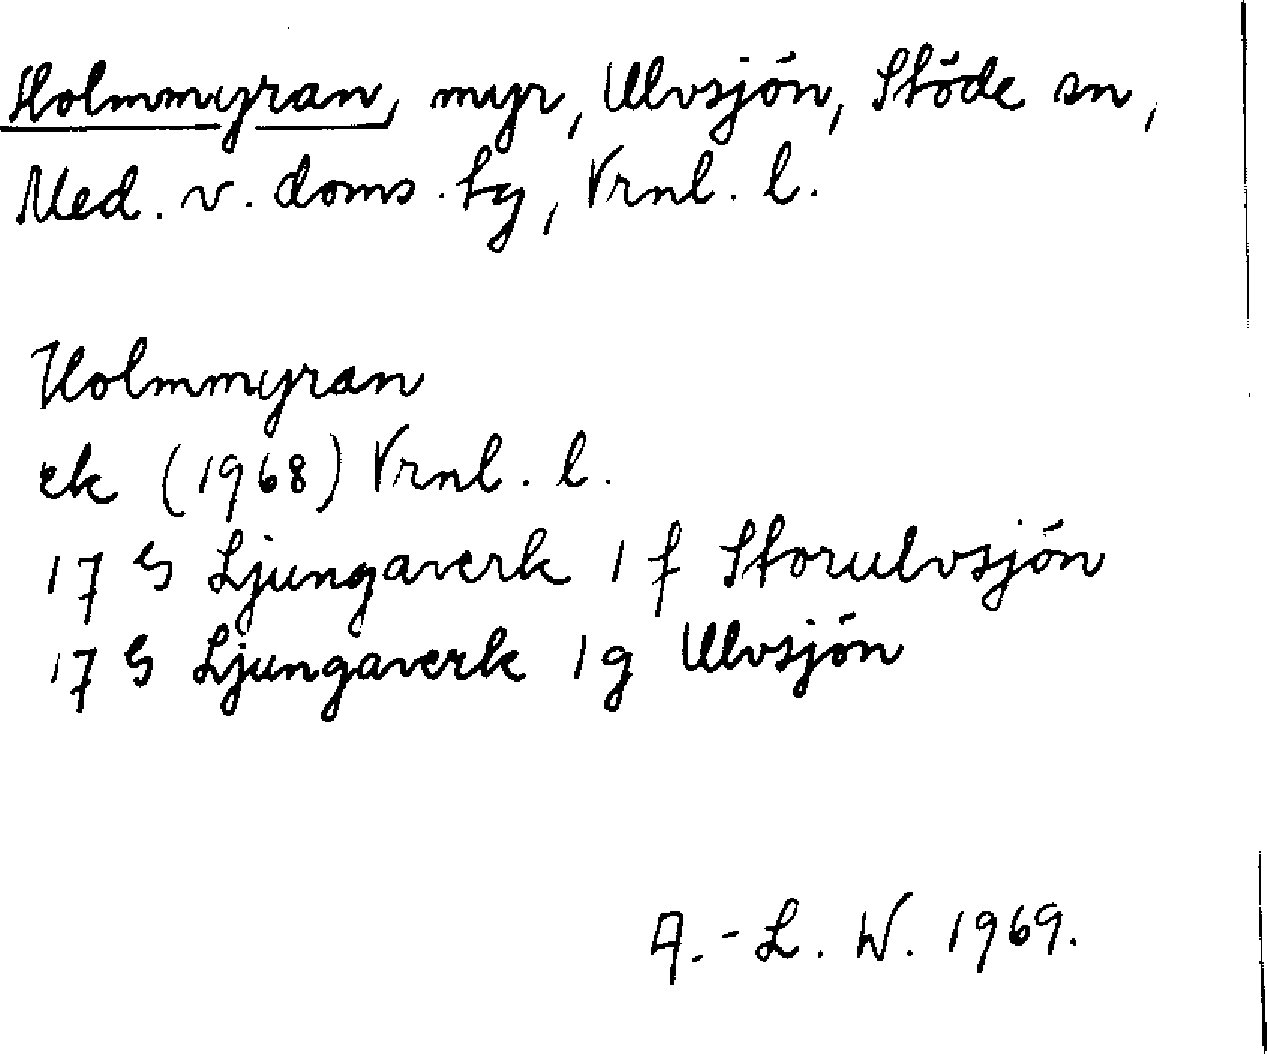 Holmmyran, myr, Ulvsjön, Stöde sn,
Med. v. doms. hg, Vrnl. l.
Holmmyran
ek (1968) Vrnl. l.
17 G Ljungaverk 1 f Storulvsjön
17 G Ljungaverk 1 g Ulvsjön
A.-L. W. 1969.